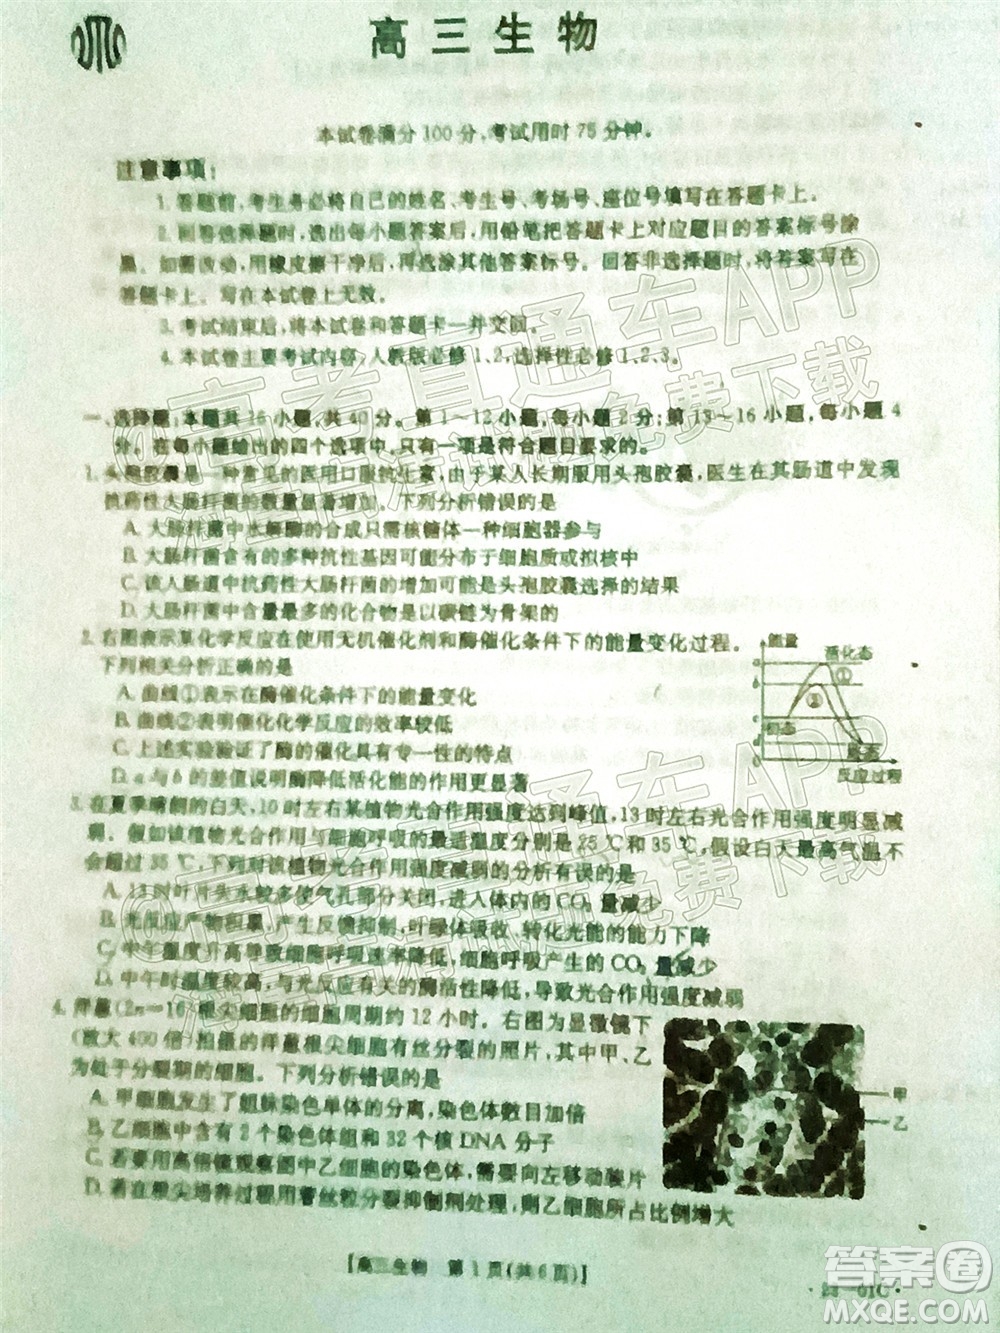 高三生物
本试卷满分100分,考试用时75分钟。
注意事项:
1.答题前,考生务必将自己的姓名、考生号、考场号、座位号填写在答题卡上。
2.回答选择题时,选出每小题答案后,用铅笔把答题卡上对应题目的答案标号涂
黑。如需改动,用橡皮擦干净后,再选涂其他答案标号。回答非选择题时,将答案写在
答题卡上。写在本试卷上无效。
3.考试结束后,将本试卷和答题卡一并交回。
4.本试卷主要考试内容:人教版必修1、2,选择性必修1、2、3。
一、选择题:本题共16小题,共40分。第1~12小题,每小题2分;第13~16小题,每小题4
分。在每小题给出的四个选项中,只有一项是符合题目要求的。
1.头孢胶囊是一种常见的医用口服抗生素,由于某人长期服用头孢胶囊,医生在其肠道中发现
抗药性大肠杆菌的数量显著增加。下列分析错误的是
A.大肠杆菌中水解酶的合成只需核糖体一种细胞器参与
B.大肠杆菌含有的多种抗性基因可能位于细胞质或拟核中
C.该人肠道中抗药性大肠杆菌的增加可能是头孢胶囊选择的结果
D.大肠杆菌中含量最多的化合物是以碳链为骨架的
2.右图表示某化学反应在使用无机催化剂和酶催化条件下的能量变化过程。
下列相关分析正确的是
A.曲线①表示在酶催化条件下的能量变化
B.曲线②表明催化化学反应的效率较低
C.上述实验验证了酶的催化具有专一性的特点
D.a与b的差值说明酶降低活化能的作用更显著
能量
活化态
①
②
初态
终态
反应过程
3.在夏季晴朗的白天,10时左右某植物光合作用强度达到峰值,13时左右光合作用强度明显减
弱。假如该植物光合作用与细胞呼吸的最适温度分别是25℃和35℃,假设白天最高气温不
会超过35℃。下列该植物光合作用强度减弱的分析有误的是
A.13时叶片蒸腾较多使气孔部分关闭,进入体内的CO₂量减少
B.光反应产物积累,产生反馈抑制,叶绿体吸收、转化光能的能力下降
C.中午温度升高导致细胞呼吸速率降低,细胞呼吸产生的CO₂量减少
D.中午时温度较高,与光反应有关的酶活性降低,导致光合作用强度减弱
4.洋葱(2n=16)根尖细胞的细胞周期约12小时。右图为显微镜下
(放大400倍)拍摄的洋葱根尖细胞有丝分裂的照片,其中甲、乙
为处于分裂期的细胞。下列分析错误的是
A.甲细胞发生了姐妹染色单体的分离,染色体数目加倍
B.乙细胞中含有2个染色体组和32个核DNA分子
C.若要用高倍镜观察图中乙细胞的染色体,需要向左下方移动装片
D.若在根尖培养过程用纺锤丝粒分裂抑制剂处理,则乙细胞所占比例增大
甲
乙
【高三生物 第1页(共6页)】
·23-01C·
高考直通车APP
海量高清试题免费下载
@高考直通车APP
海量高清试题免费下载
答案圈
MXQE.COM